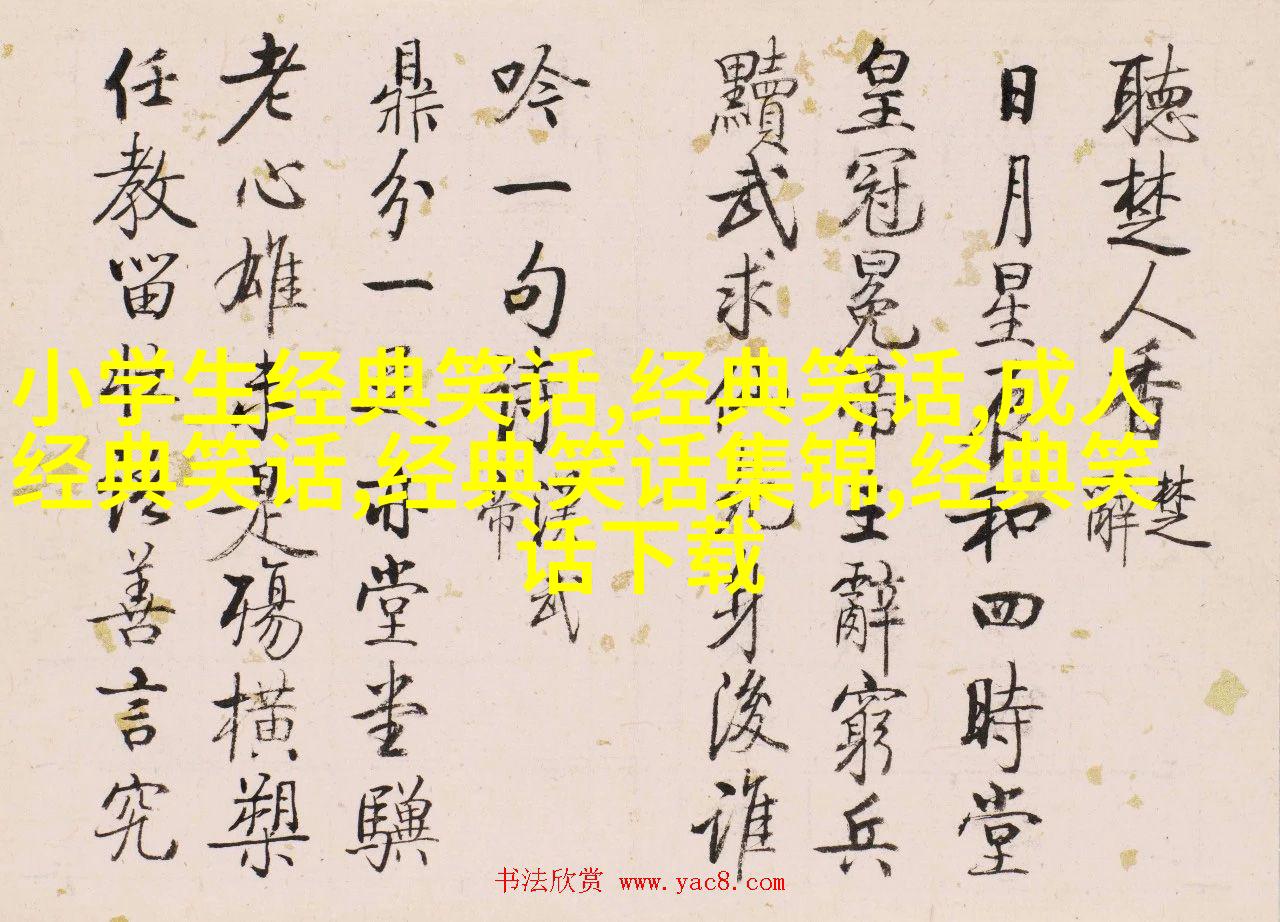 聽楚人香 楚辭
日月星辰和四時堂
皇冠冕帝王辭窮兵
黷武求仙死身後誰
吟一句詩 漢武帝
鼎分一足亦堂堂驥
老心雄未是殤橫槊
任教留善言究
小学生经典笑话,经典笑话,成人
经典笑话,经典笑话集锦,经典笑
话下载
书法欣赏 www.yac8.com